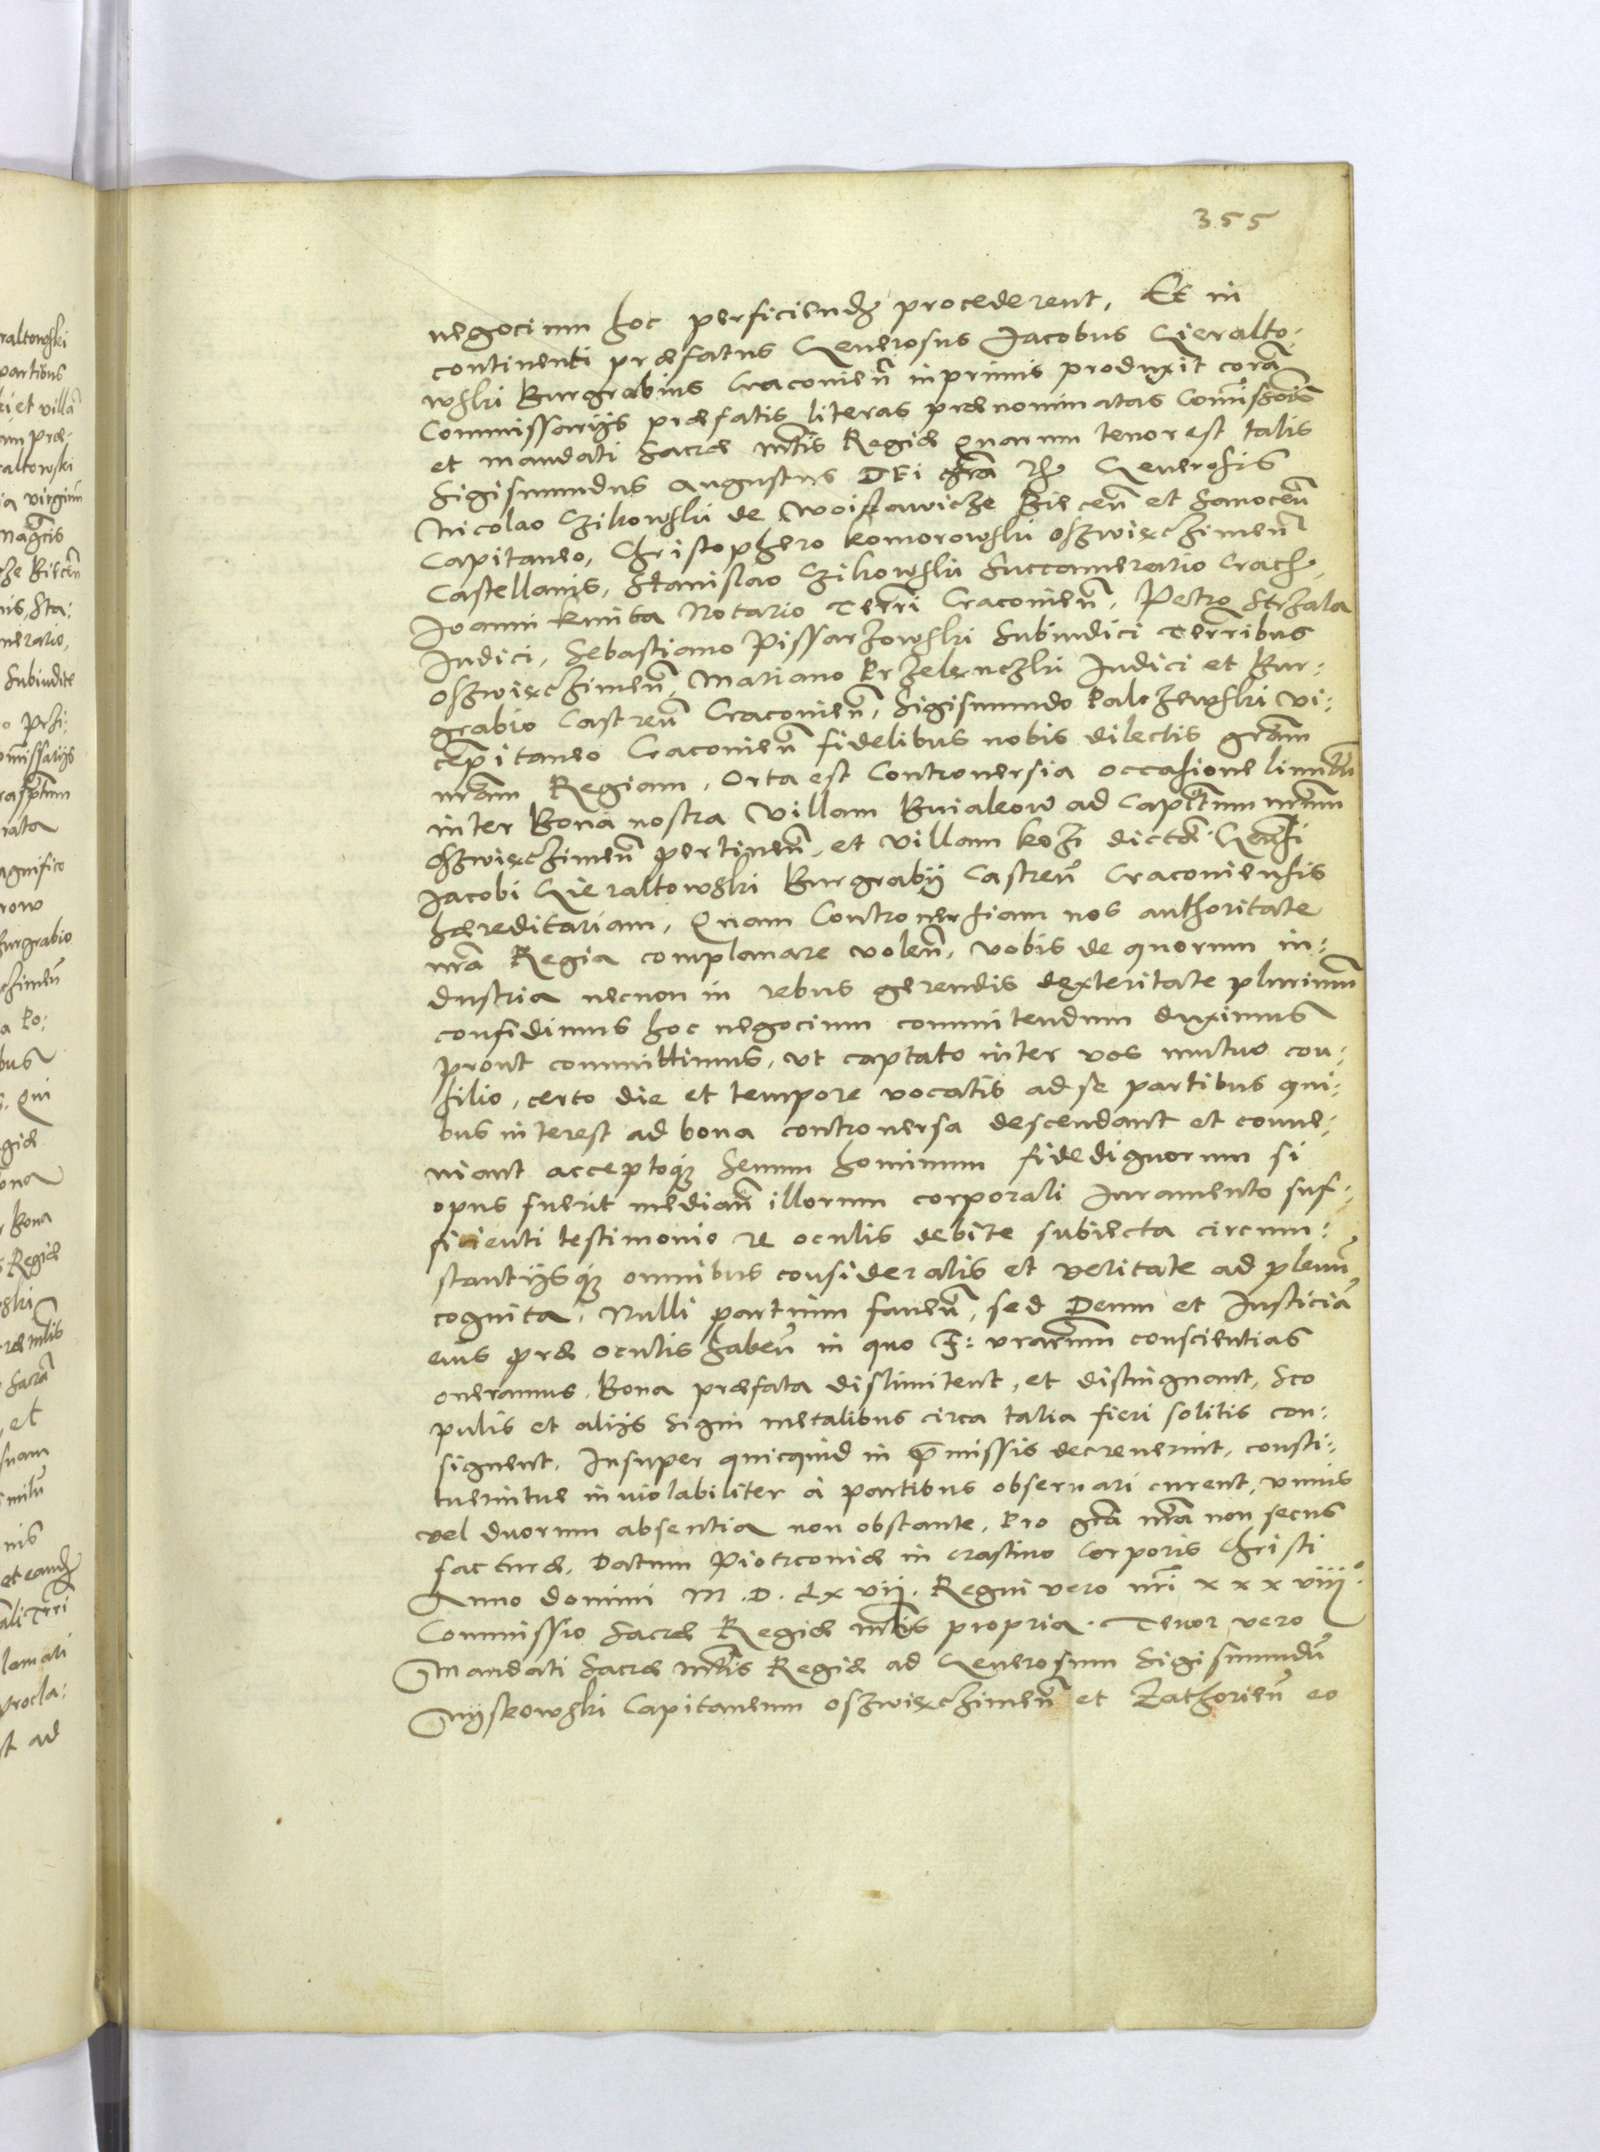 355
negocium hoc perficiend procederent, Et in
continenti præfatus Generosus Jacobus Gieralto:
wski Burgrabius Cracovien̄ inprimis produxit corā
Commissarijs præfatis literas prænominatas Comissionis
et mandati Sacræ Mtis Regiæ Quarum tenor est talis
Sigismundus Augustus DEi grā Rex Generosis
Nicolao Czikowski de Woislawicze Biecen̄ et Sanocen̄
Capitaneo, Christophero Komorowski Oszwięczimen̄
Castellanis, Stanislao Czikowski Succamerario Crach,
Joanni Kmita Notario Terri Cracovien̄, Petro Strzala
Iudici, Sebastiano Pissarzowski Subiudici Terribus
Oszwięczimen̄, Mariano Przelęnczki Iudici et Bur:
grabio Castren̄ Cracovien̄, Sigismundo Palozewski Vi:
cepitaneo Cracovien̄ fidelibus nobis dilectis grām
nrām Regiam, Orta est Controversia occasione limitū
inter Bona nostra Villam Buiakow ad Capitum nrūm
Oszwięczimen̄ pertinen̄, et Villam Kozi dictā Gensi
Jacobi Gieraltowski Burgrabij Castren̄ Cracoviensis
hæreditariam, Quam Controversiam nos authoritate
nrā Regia complanare volen̄, vobis de quorum in:
dustria necnon in rebus gerendis dexteritate plurimū
confidimus hoc negocium commitendum duximus
prout committimus, ut captato inter vos mutuo con:
silio, certo die et tempore vocatis ad se partibus qui:
bus interest ad bona controversa descendant et conve:
niant acceptoq senum hominum fidedignorum si
opus fuerit median̄ illorum corporali Iuramento suf:
ficienti testimonio re oculis debite subiecta circum:
stantijsq omnibus consideratis et veritate ad plenū
cognita, Nulli partium faven̄, sed Deum et Iusticiā
eius præ oculis haben̄ in quo F: vrarūm conscientias
oneramus, Bona præfata dislimitent, et distinguant, Sco
pulis et alijs Signi metalibus circa talia fieri solitis con:
signent, Insuper quicquid in pmissis decreverint, consti:
tuerintve inviolabiliter à partibus observari curent, unius
vel duorum absentia non obstante, Pro grā nrā non secus
facturæ, Datum Piotrcoviæ in crastino Corporis Christi
Anno domini M.D.Lxvij. Regni vero nrī xxxviij°
Commissio Sacræ Regiæ Mtis propria. Tenor vero
Mandati Sacræ Mtis Regiæ ad Generosum Sigismundū
Myskowski Capitaneum Oszwięczimen̄ et Zathorien̄ eo